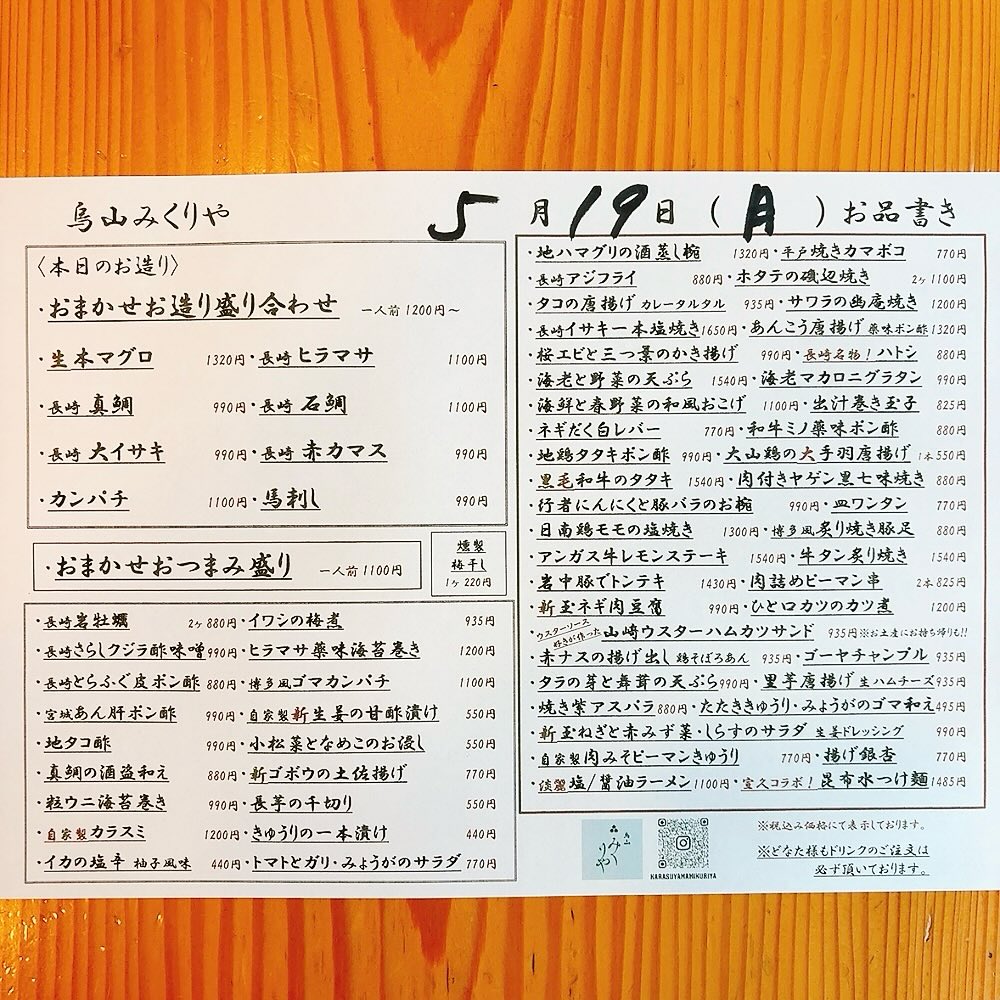 烏山みくりや
5月19日(月)お品書き
〈本日のお造り〉
・おまかせお造り盛り合わせ 一人前1200円～
・生本マグロ 1320円・長崎 ヒラマサ 1100円
・長崎 真鯛 990円・長崎 石鯛 1100円
・長崎 大イサキ 990円・長崎 赤カマス 990円
・カンパチ 1100円・馬刺し 990円
・おまかせおつまみ盛り 一人前1100円
燻製
梅干し
1ヶ220円
・長崎岩牡蠣 2ヶ880円・イワシの梅煮 935円
・長崎さらしクジラ酢味噌990円・ヒラマサ薬味海苔巻き 1200円
・長崎とらふぐ皮ポン酢 880円・博多風ゴマカンパチ 1100円
・宮城あん肝ポン酢 990円・自家製新生姜の甘酢漬け 550円
・地タコ酢 990円・小松菜となめこのお浸し 550円
・真鯛の酒盗和え 880円・新ゴボウの土佐揚げ 770円
・粒ウニ海苔巻き 990円・長芋の千切り 550円
・自家製カラスミ 1200円・きゅうりの一本漬け 440円
・イカの塩辛 柚子風味 440円・トマトとガリ・みょうがのサラダ 770円
・地ハマグリの酒蒸し椀 1320円・平戸焼きカマボコ 770円
・長崎アジフライ 880円・ホタテの磯辺焼き 2ヶ1100円
・タコの唐揚げ カレータルタル 935円・サワラの幽庵焼き 1200円
・長崎イサキ一本塩焼き1650円・あんこう唐揚げ 薬味ポン酢1320円
・桜エビと三つ葉のかき揚げ 990円・長崎名物！ハトシ 880円
・海老と野菜の天ぷら 1540円・海老マカロニグラタン 990円
・海鮮と春野菜の和風おこげ 1100円・出汁巻き玉子 825円
・ネギだく白レバー 770円・和牛ミノ薬味ポン酢 880円
・地鶏タタキポン酢 990円・大山鶏の大手羽唐揚げ 1本550円
・黒毛和牛のタタキ 1540円・肉付きヤゲン黒七味焼き 880円
・行者にんにくと豚バラのお椀 990円・皿ワンタン 770円
・日南鶏モモの塩焼き 1300円・博多風炙り焼き豚足 880円
・アンガス牛レモンステーキ 1540円・牛タン炙り焼き 1540円
・岩中豚でトンテキ 1430円・肉詰めピーマン串 2本825円
・新玉ネギ肉豆腐 990円・ひと口カツのカツ煮 1200円
・ウスターソース好きが作った 山崎ウスターハムカツサンド 935円※お土産にお持ち帰りも!!
・赤ナスの揚げ出し 鶏そぼろあん 935円・ゴーヤチャンプル 935円
・タラの芽と舞茸の天ぷら990円・里芋唐揚げ 生ハムチーズ935円
・焼き紫アスパラ880円・たたききゅうり・みょうがのゴマ和え495円
・新玉ねぎと赤みず菜・しらすのサラダ 生姜ドレッシング 990円
・自家製肉みそピーマンきゅうり 770円・揚げ銀杏 770円
・淡麗塩/醤油ラーメン1100円・宣久コラボ！昆布水つけ麺1485円
みくりや
KARASUYAMAMIKURIYA
※税込み価格にて表示しております。
※どなた様もドリンクのご注文は
必ず頂いております。